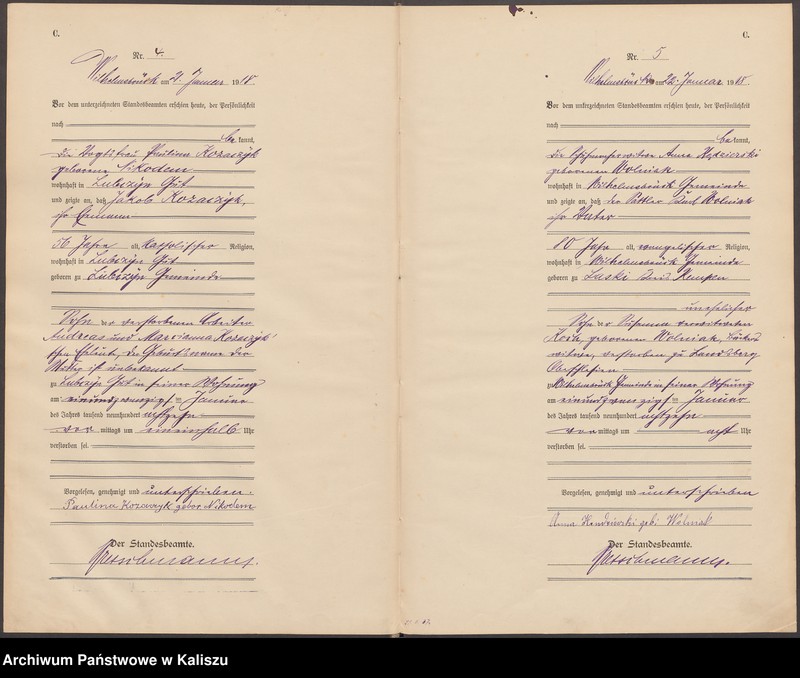 C.
Nr. 4.
Wilhelmsbrück am 21. Januar 1918.
Vor dem unterzeichneten Standesbeamten erschien heute, der Persönlichkeit
nach
be kannt,
die Vogtsfrau Paulina Kozaszyk
geborene Nikodem
wohnhaft in Lubczyn Gut
und zeigte an, daß Jakob Kozaszyk,
ihr Ehemann
56 Jahre alt, katholischer Religion,
wohnhaft in Lubczyn Gut
geboren zu Lubczyn Gemeinde
Sohn der verstorbenen Arbeiter
Andreas und Marianna Kozaszyk'
schen Eheleute, der Geburtsname der
Mutter ist unbekannt
zu Lubczyn Gut in seiner Wohnung
am einundzwanzigsten Januar
des Jahres tausend neunhundert achtzehn
vor mittags um eineinhalb Uhr
verstorben sei.
Vorgelesen, genehmigt und unterschrieben.
Paulina Kozaszyk gebor. Nikodem
Der Standesbeamte.
C.
Nr. 5
Wilhelmsbrück am 22. Januar 1918.
Vor dem unterzeichneten Standesbeamten erschien heute, der Persönlichkeit
nach
be kannt,
die Anna
geborenen Wolniak
wohnhaft in Wilhelmsbrück Gemeinde
und zeigte an, daß der Sattler Karl Wolniak
ihr Vater
80 Jahr alt, evangelischer Religion,
wohnhaft in Wilhelmsbrück Gemeinde
geboren zu Laski Kreis Kempen
unehelicher
Sohn der Susanna verwitweten
geborenen Wolniak,
witwe, verstorben zu Landsberg
Oberschlesien
zu Wilhelmsbrück Gemeinde in seiner Wohnung
am einundzwanzigsten Januar
des Jahres tausend neunhundert achtzehn
vor mittags um acht Uhr
verstorben sei.
Vorgelesen, genehmigt und unterschrieben
Anna
Der Standesbeamte.
Archiwum Państwowe w Kaliszu